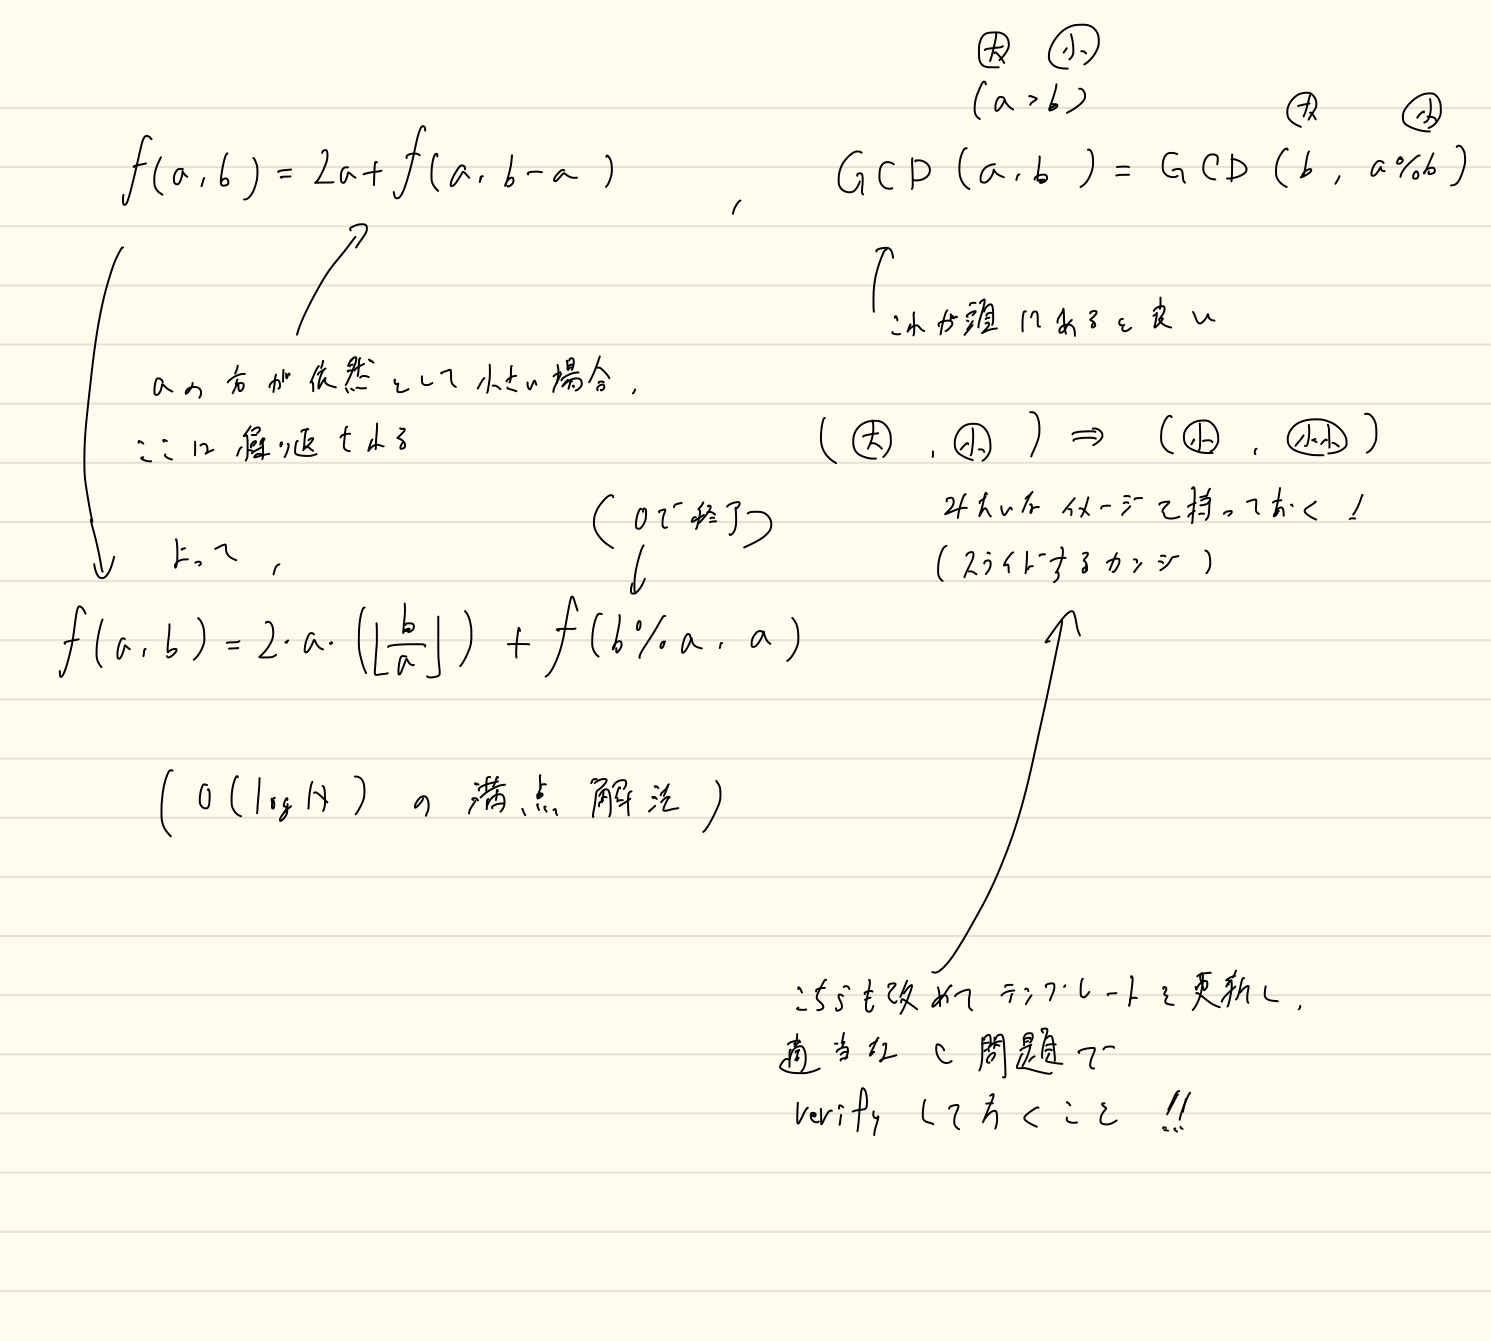 f(a, b) = 2a + f(a, b-a)
aの方が依然として小さい場合,
ここは繰り返される
よって,
(0で終了)
f(a, b) = 2・a・(⌊b/a⌋) + f(b%a, a)
(O(log A) の満点解法)
大 小
(a > b)
大 小
GCD(a, b) = GCD(b, a%b)
これが頭にあると良い
(大, 小) ⇒ (小, 小小)
みたいなイメージで持っておく!
(スライドするカンジ)
こちらも改めてテンプレートを更新し,
適当な C 問題で
verify しておくこと!!